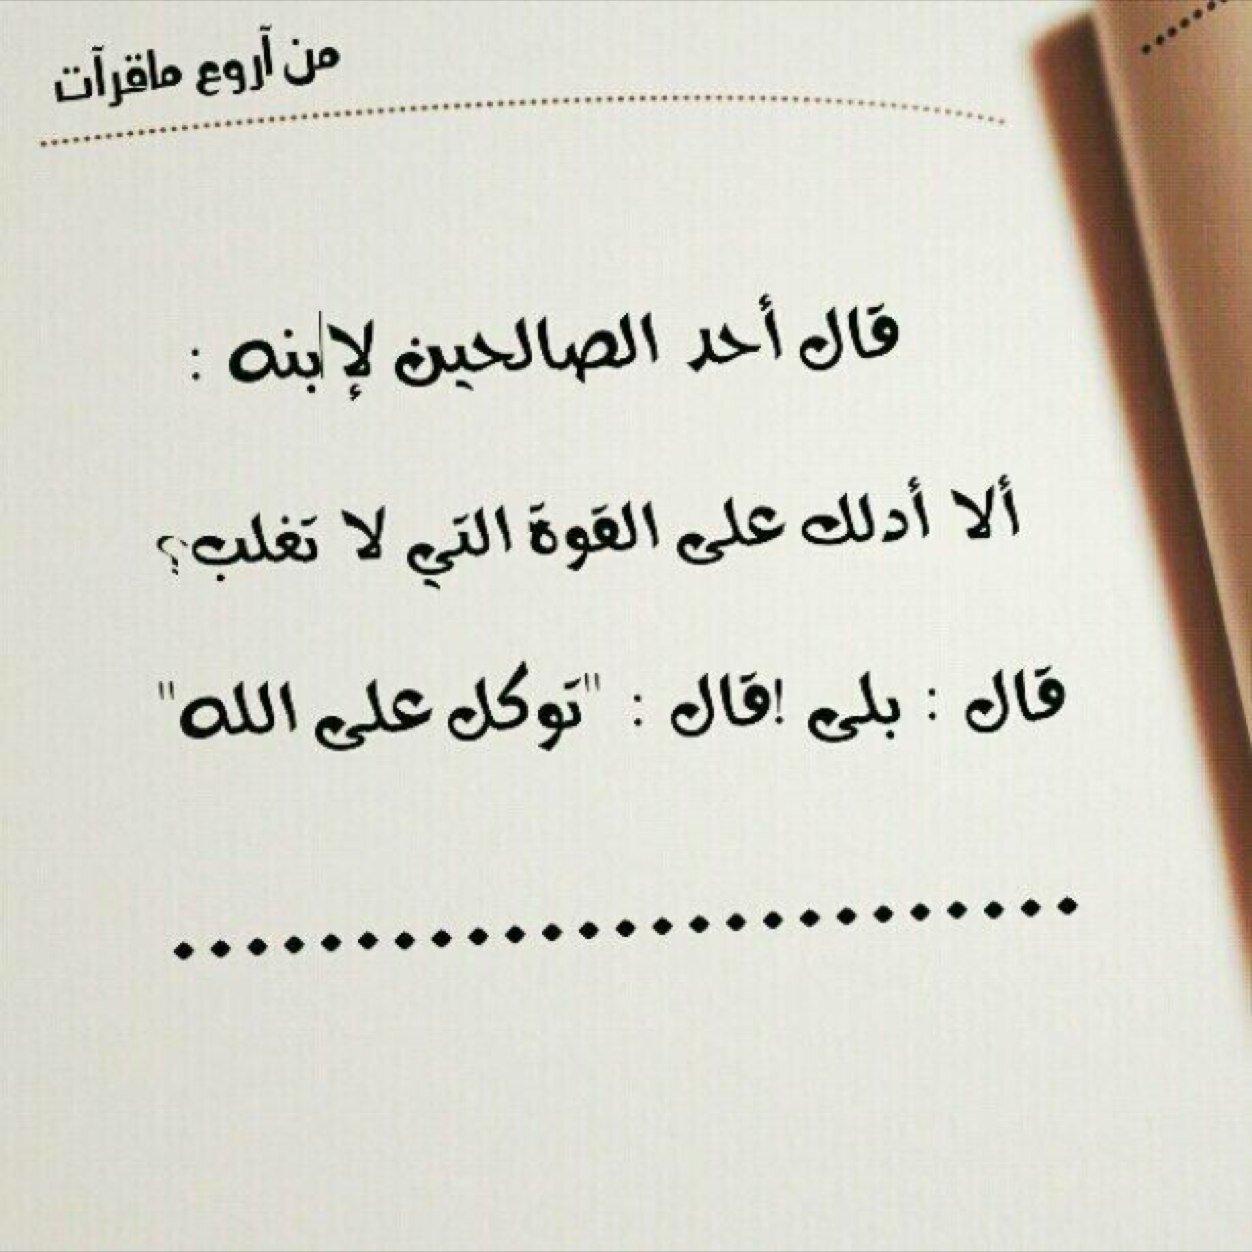 من آروع ماقرآت
قال أحد الصالحين لإبنه :
ألا أدلك على القوة التي لا تغلب؟
قال : بلى !قال : "توكل على الله"